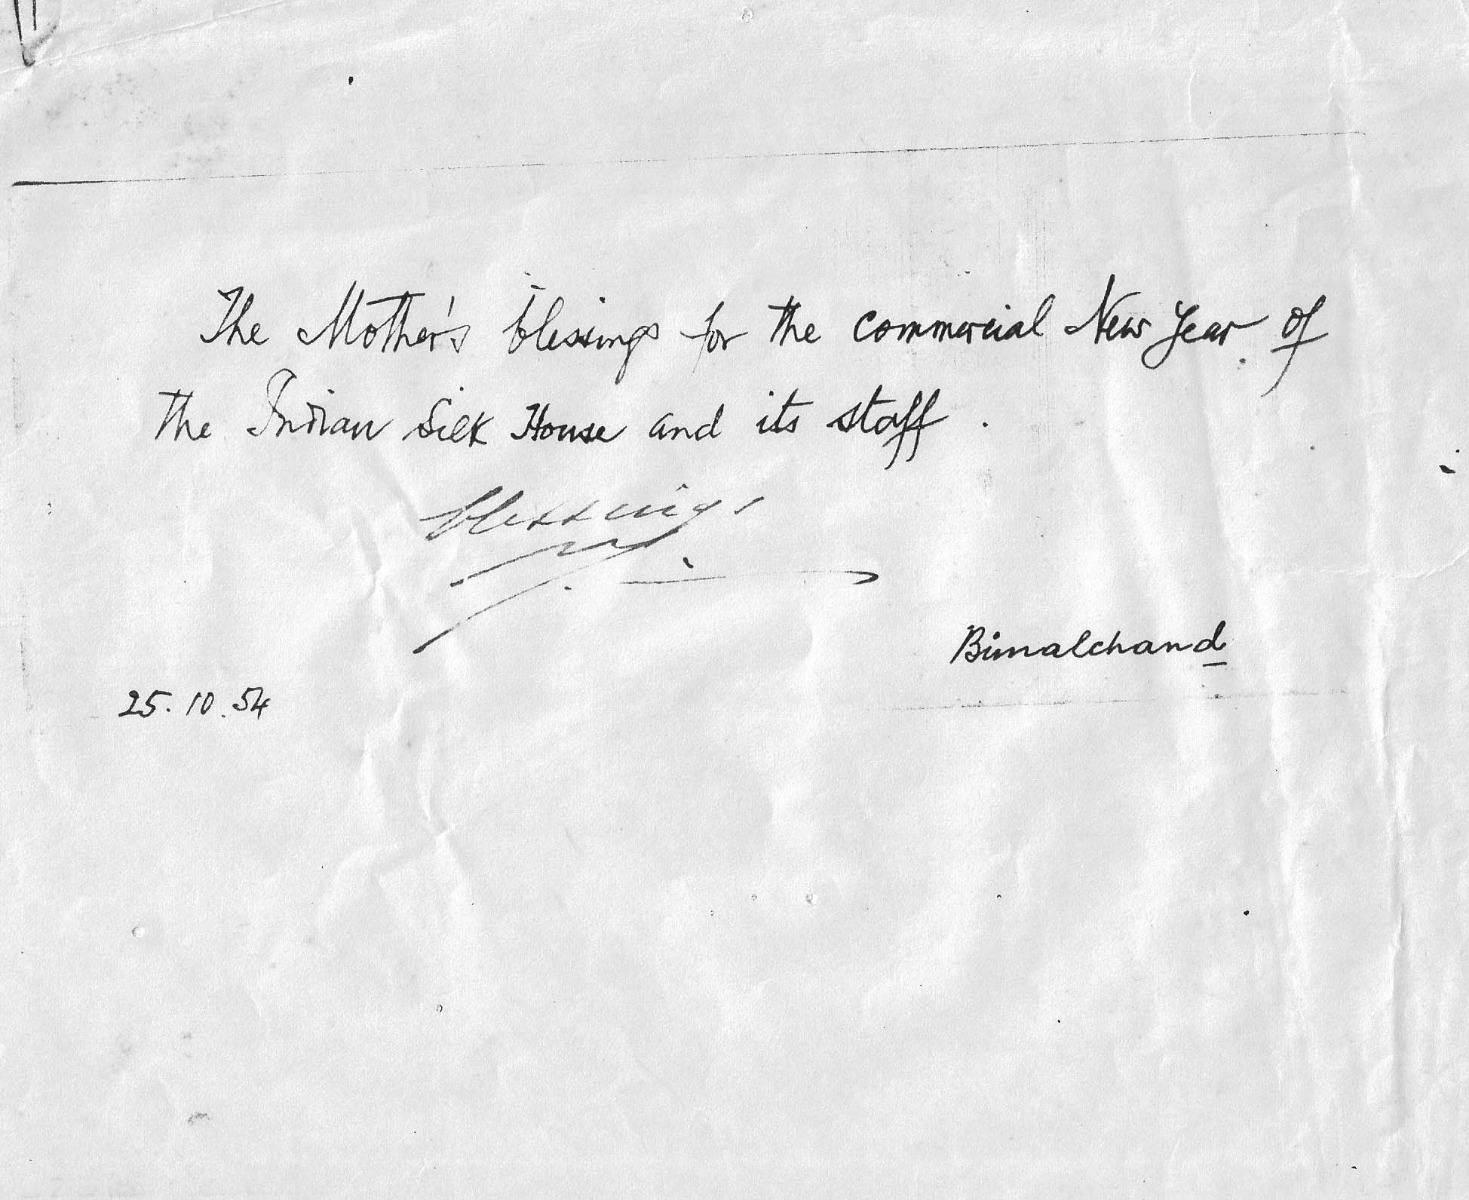 The Mother's blessings for the commercial New Year of
the Indian Silk House and its staff.
blessings
Bimalchand
25.10.54